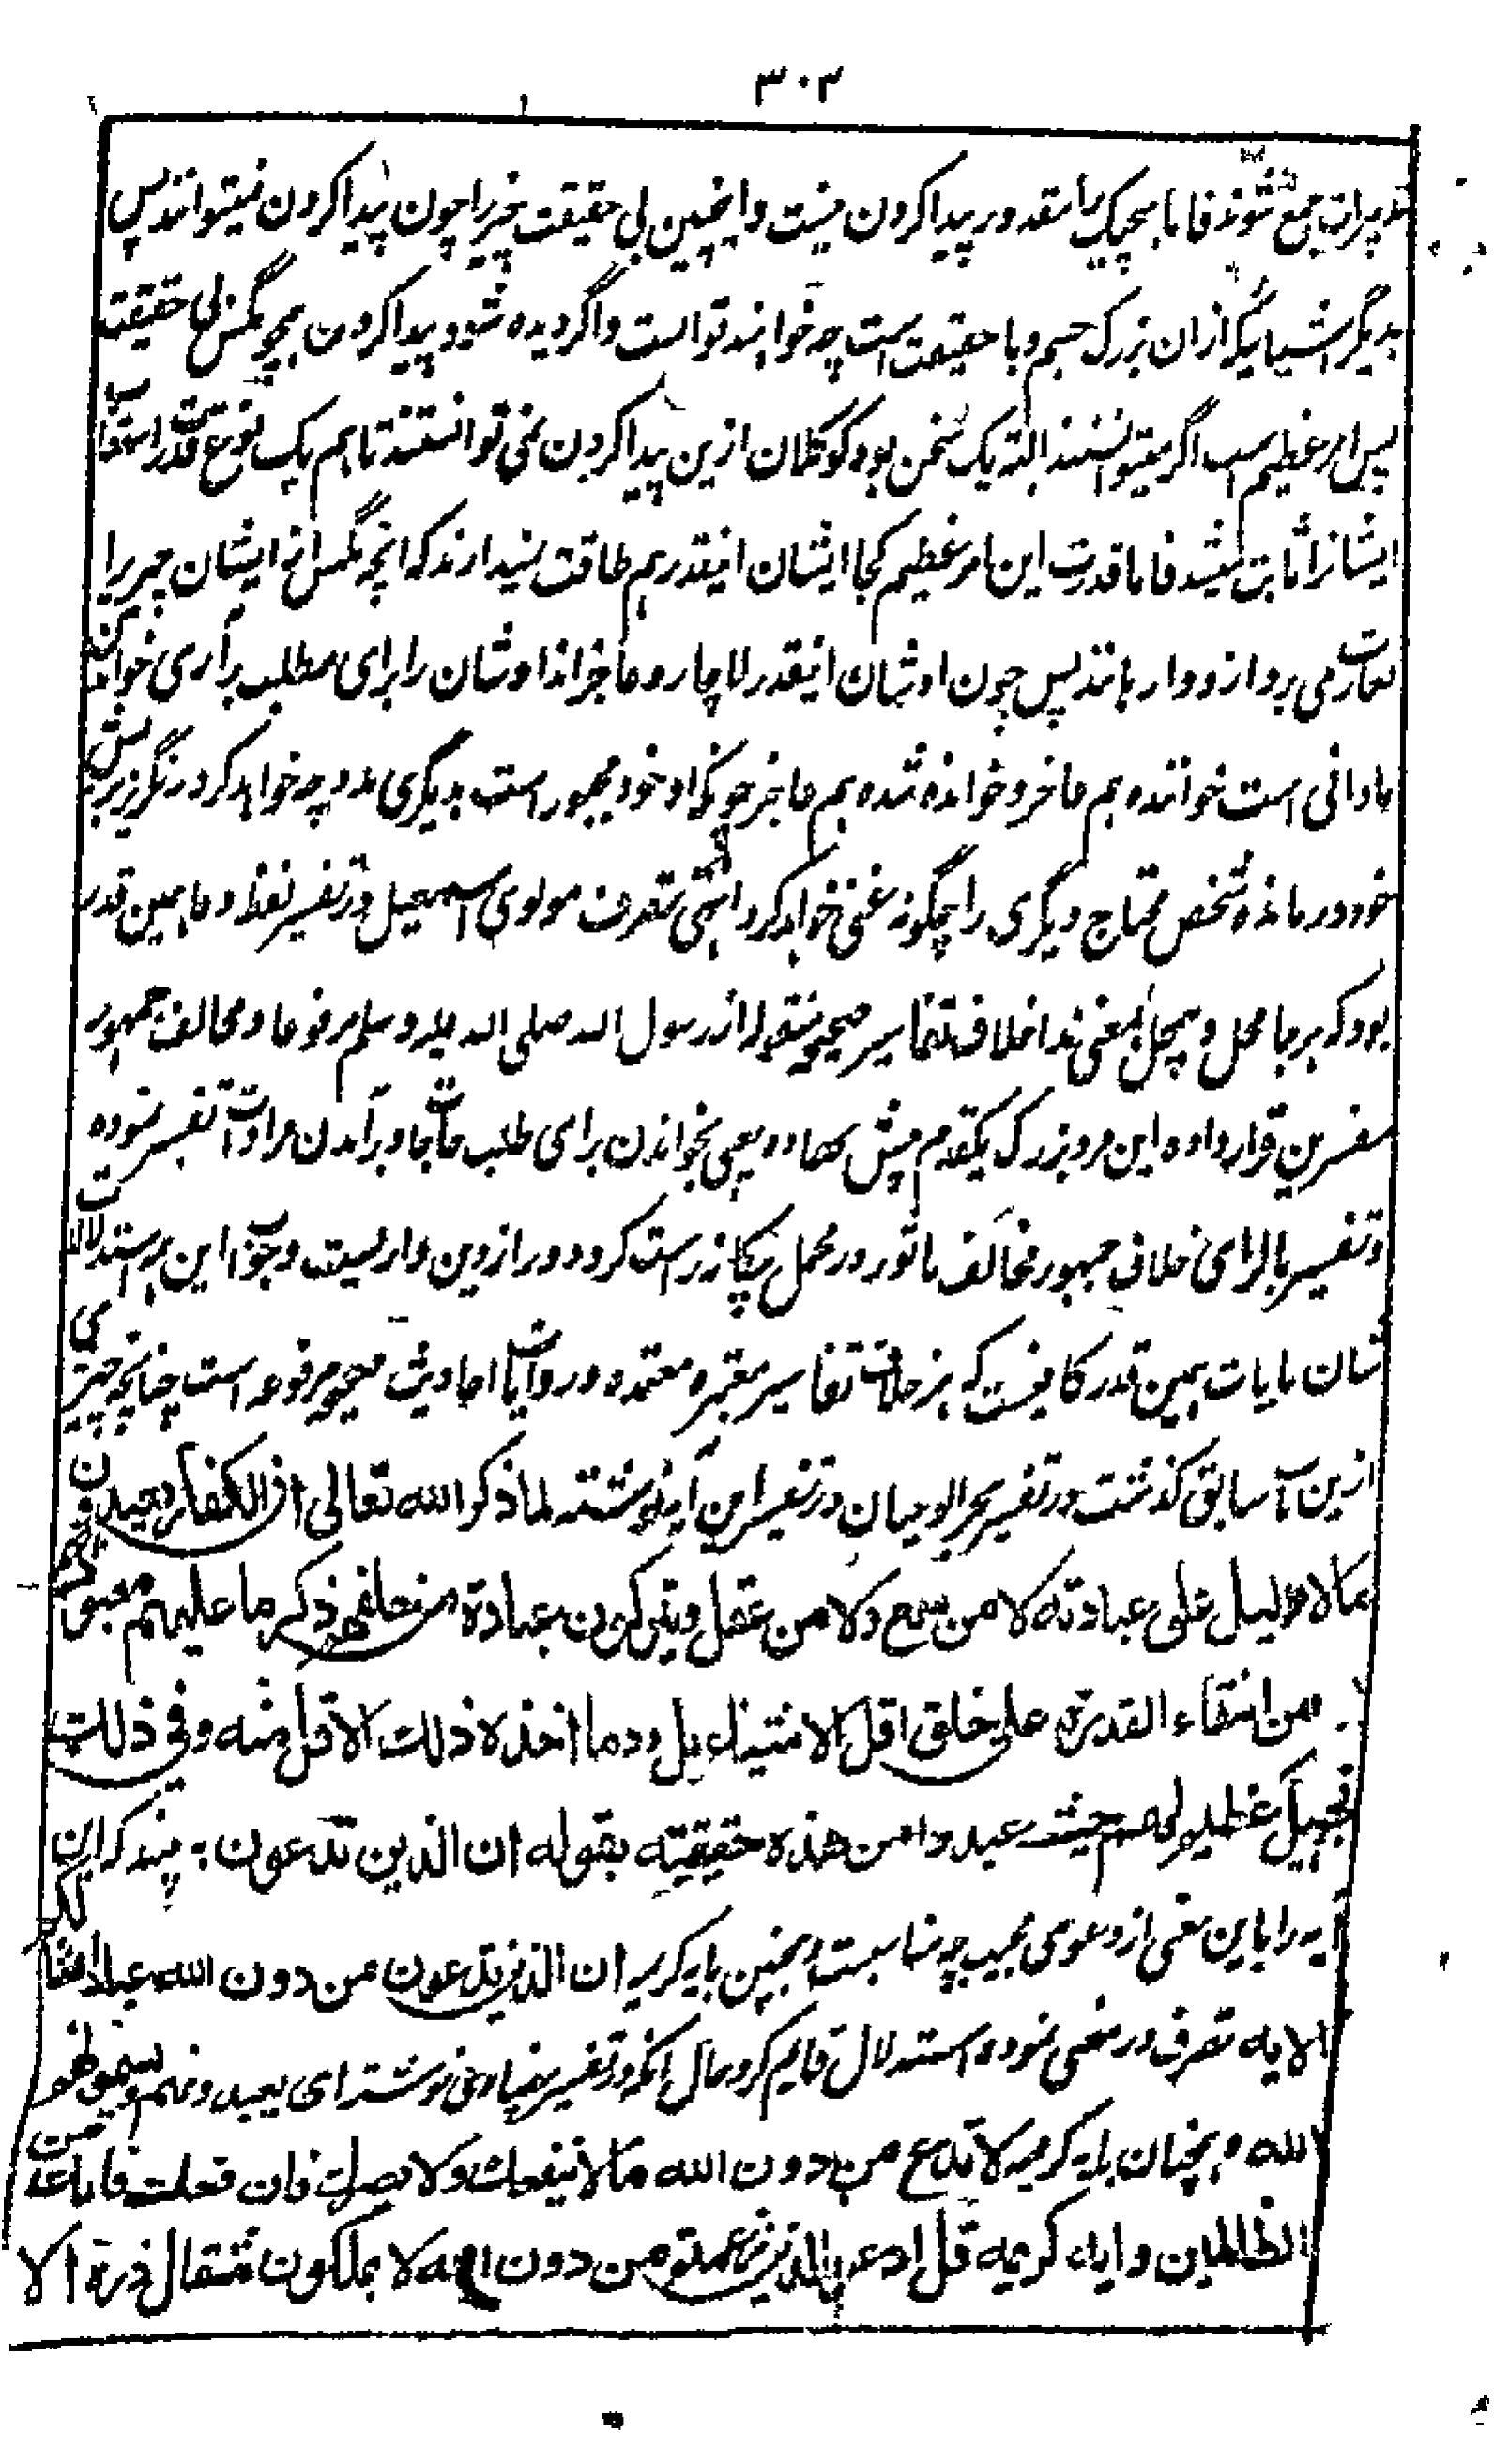 ۳۰۳
تدبیرات جمع شوند فاما هیچیک را مقدور پیدا کردن نیست و اینچنین بی حقیقت چیز را چون پیدا کردن نمیتوانند پس
بدیگر اشیائیکه ازان بزرک جسم و با حقیقت است چه خواهند توانست و اگر دیده شود پیدا کردن همچو مگس بی حقیقت
پس امر عظیم است اگر میتوانستند البته یک سخن بود گو کلان ازین پیدا کردن نمی توانستند تا هم یک نوع قدرت
ایشانرا ثابت میشد فاما قدرت این امر عظیم کجا ایشان اینقدر هم طاقت نمیدارند که انچه مگس از ایشان چیز را
می برد ازو وارهانند پس چون اوشان اینقدر لاچار و عاجزاند اوشان را برای مطلب برآری خواندن
نادانی است خواننده هم عاجز و خوانده شده هم عاجز چونکه او خود مجبور است بدیگری مدد چه خواهد کرد
خود درمانده شخص محتاج دیگری را چگونه غنی خواهد کرد انتهی تصرف مولوی اسمعیل در تفسیر لفظ دعا همین قدر
بود که هر جا محل و بیمحل بمعنی ندا خلاف تفاسیر صحیحه منقوله از رسول الله صلی الله علیه وسلم مرفوعا و مخالف جمهور
مفسرین قرار داده این مرد بزرک یکقدم پیش نهاده یعنی بخواندن برای طلب حاجات و برآمدن مرادات تفسیر نموده
و تفسیر بالرای خلاف جمهور مخالف ماثور در محمل بیگانه راست کرد و دور از دین داریست و جواب این همه استدلالات
شان بایات همین قدر کافیست که بر خلاف تفاسیر معتبره معتمده و روایات احادیث صحیحه مرفوعه است چنانچه چیزی
ازین ما سابق گذشت در تفسیر بحر الوجیان در تفسیر این آیه نوشته لما ذکر الله تعالی ان الکفار یعبدون
مالا دلیل علی عبادته لا من سمع ولا من عقل ویترکون عبادة من خلقهم ذکر ما علیهم
من انتفاء القدرة علی خلق اقل الاشیاء بل ورد ما اخذه ذلك الاقل منه وفی ذلك
تجهیل عظیم لهم حیث عبدوا من هذه حقیقته بقوله ان الذین تدعون بینید که این
آیه را باین معنی از دعوی مجیب چه مناسبت و همچنین بآیه کریمه ان الذین تدعون من دون الله عباد امثالکم
الایه تصرف در معنی نموده استدلال قایم کرد حال آنکه در تفسیر بیضاوی نوشته ای یعبدونهم
الله و همچنان بآیه کریمه لا تدع من دون الله مالا ینفعك ولا یضرك فان فعلت فانك من
الظالمین و ایه کریمه قل ادعوا الذین زعمتم من دون الله لا یملکون مثقال ذرة الا